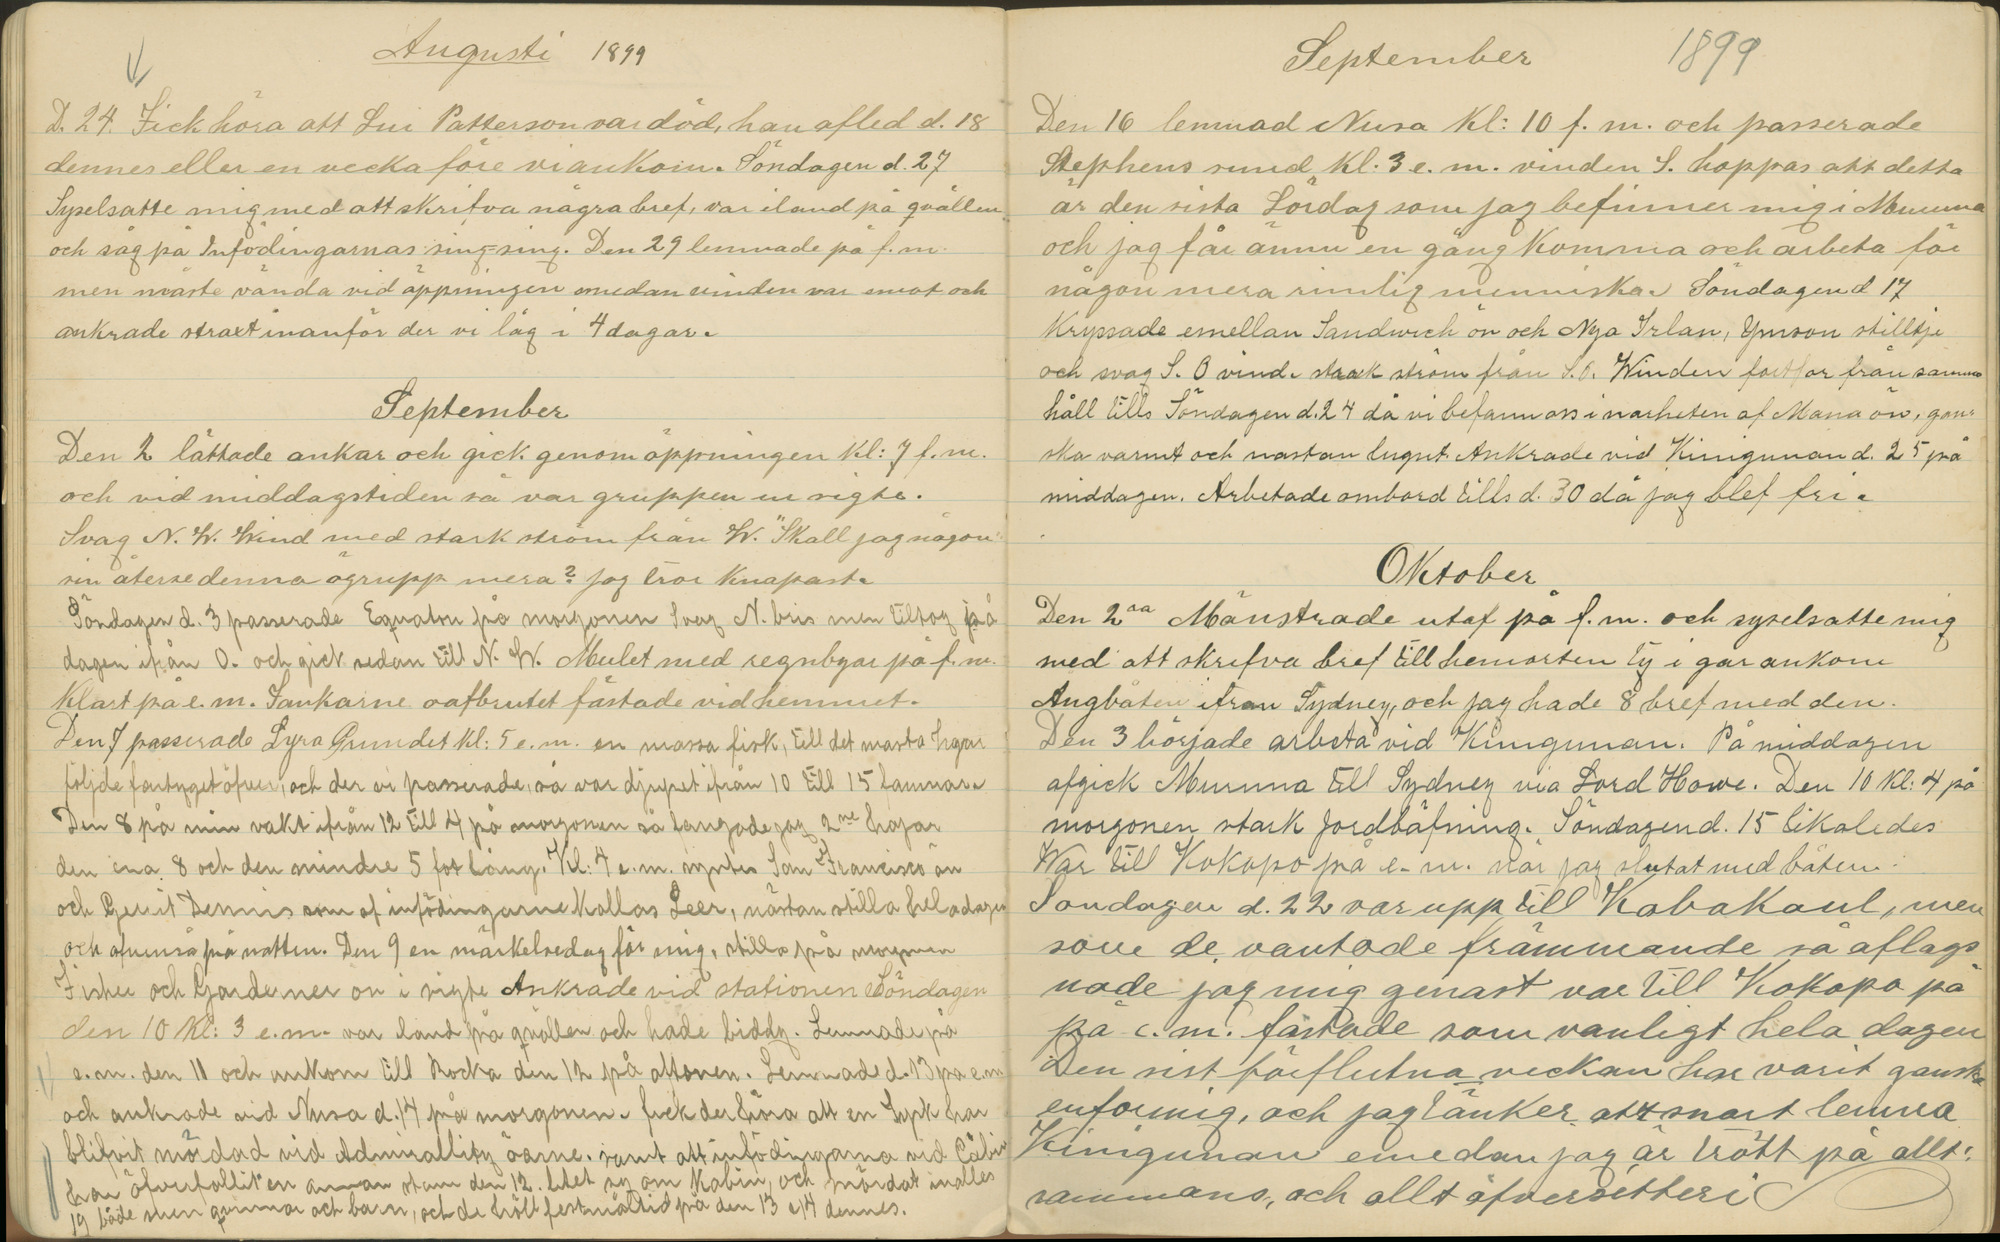 Augusti 1899
D. 24. Fick höra att Lui Patterson var död, han afled d. 18
dennes eller en vecka före vi ankom. Söndagen d. 27
Syselsatte mig med att skrifva några bref, var iland på qvällen
och såg på Infödingarnas sing-sing. Den 29 lemnade på f.m.
men måste vända vid öppningen emedan vinden var emot och
ankrade straxt inanför der vi låg i 4 dagar.
September
Den 2 lättade ankar och gick genom öppningen Kl: 7 f.m.
och vid middagstiden så var gruppen ur sigte.
Svag N. W. Wind med stark ström från W. "Skall jag någon
sin återse denna ögrupp mera? jag tror knapast.
Söndagen d. 3 passerade Equatorn på morgonen Svag N. bris men tilltog på
dagen ifrån O. och gick sedan till N. W. Mulet med regnbyar på f.m.
Klart på e.m. Tankarne oafbrutet fästade vid hemmet.
Den 7 passerade Lyra Grundet Kl: 5 e.m. en massa fisk, till det mesta hajar
följde fartyget öfver, och der vi passerade, så var djupet ifrån 10 till 15 famnar.
Den 8 på min vakt ifrån 12 till 4 på morgonen så fangade jag 2ne hajar
den ena 8 och den mindre 5 fot lång. Kl: 4 e.m. syntes San Francisco ön
och Gerrit Dennis som af infödingarne kallas Leer, nästan stilla hela dagen
och afvenså på natten. Den 9 en märkelsedag för mig, stilla på morgonen
Fisher och Gardener ön i sigte Ankrade vid stationen Söndagen
den 10 Kl: 3 e.m. var iland på qvällen och hade biddy. Lemnade på
e.m. den 11 och ankom till Rocka den 12 på aftonen. Lemnade d. 13 på e.m
och ankrade vid Nusa d. 14 på morgonen. fick der höra att en Tysk har
blifvit mördad vid Admirallity öarne. samt att infödingarna vid
har öfverfallit en annan stam den 12. litet ny om Kabin, och mördat inalles
19 både men qvinnor och barn, och de höll festmåltid på den 13 e/14 dennes.
September 1899
Den 16 lemnad Nusa Kl: 10 f. m. och passerade
Stephens sund Kl: 3 e. m. vinden S. hoppas att detta
är den sista Lördag som jag befinner mig i Mumma
och jag får ännu en gång komma och arbeta för
någon mera rimlig menniska. Söndagen d 17
Kryssade emellan Sandwich ön och Nya Irlan, Ymson stilltje
och svag S. O vind. stark ström från S.O. Winden fortfor från samma
håll tills Söndagen d. 24 då vi befann oss i narheten af Mana ön, gan-
ska varmt och nastan lugnt. Ankrade vid Kinigunan d. 25 på
middagen. Arbetade ombord tills d. 30 då jag blef fri.
Oktober
Den 2aa Mönstrade utaf på f. m. och syselsatte mig
med att skrifva bref till hemorten ty i går ankom
Angbåten ifran Sydney, och jag hade 8 bref med den.
Den 3 började arbeta vid Kinigunan. På middagen
afgick Mumma till Sydney via Lord Howe. Den 10 Kl: 4 på
morgonen stark jordbäfning. Söndagen d. 15 likaledes
War till Kokopo på e. m. när jag slutat med båten.
Sondagen d. 22 var upp till Kabakaul, men
som de vantade främmande så aflags
nade jag mig genast var till Kokopo på
på e. m. fastade som vanligt hela dagen
Den sist förflutna veckan har varit ganska
enformig, och jag tänker att snart lemna
Kinigunan emedan jag är trött på allt-
sammans, och allt öfversitteri